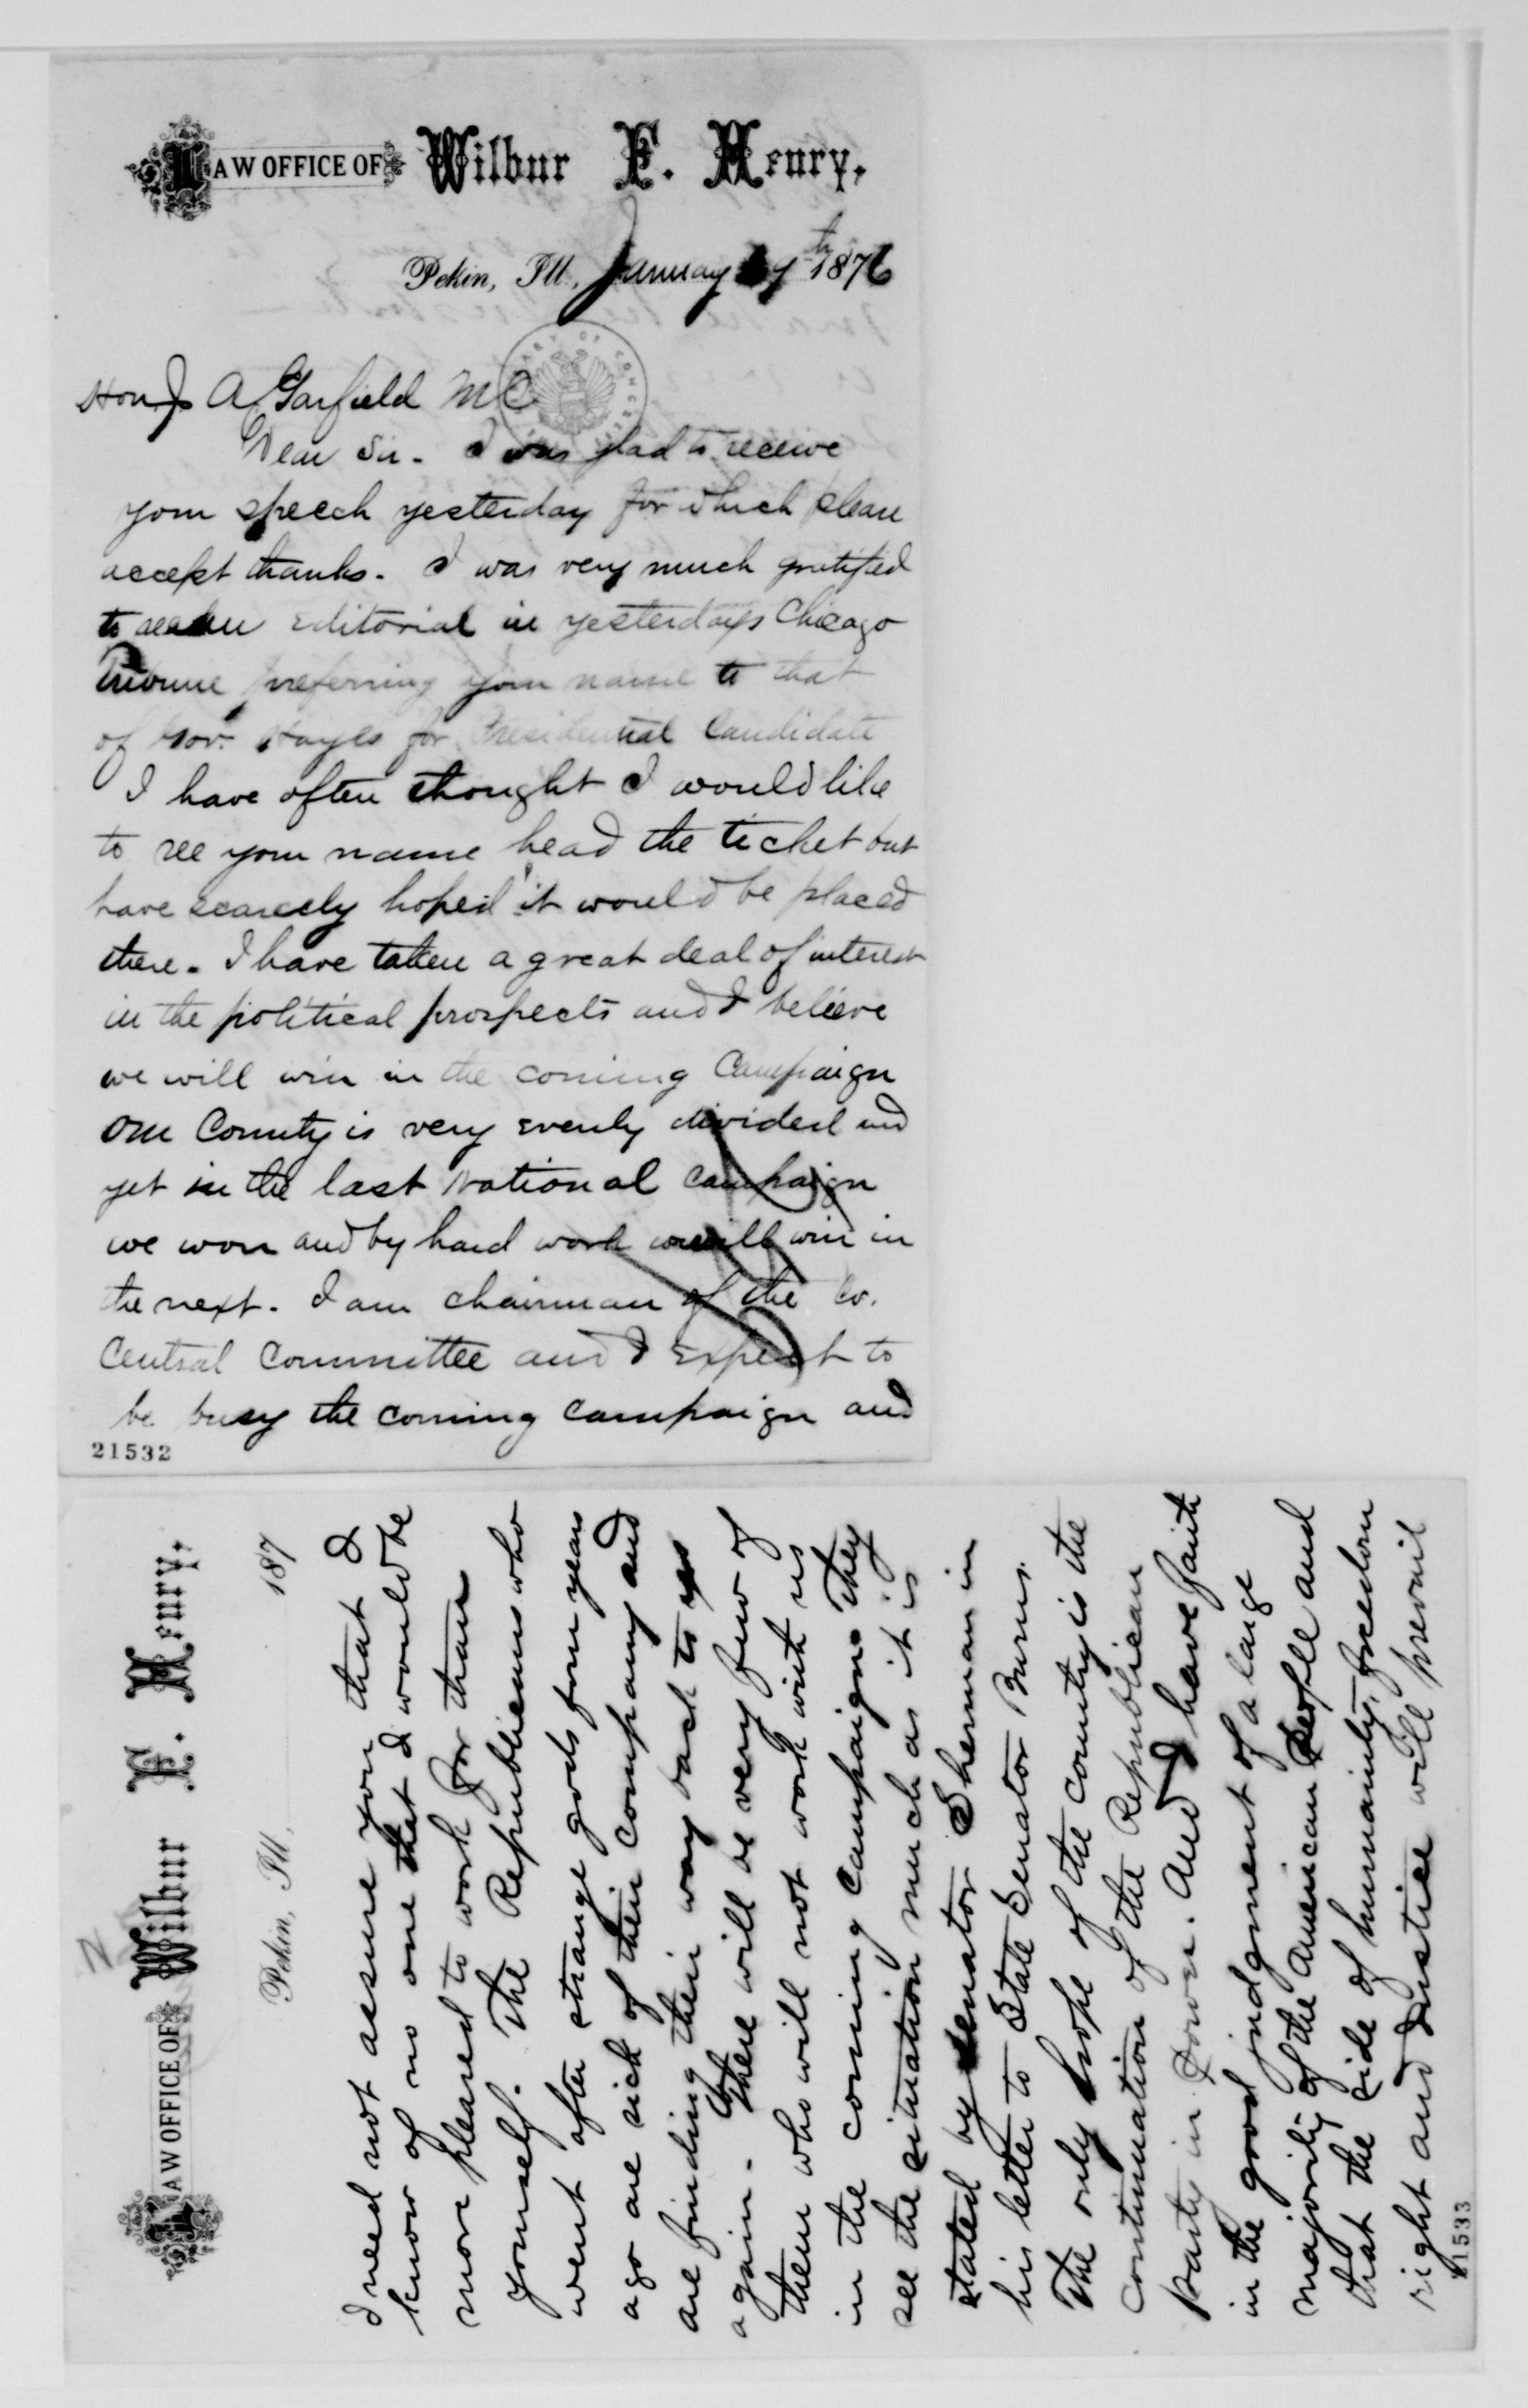 LAW OFFICE OF Wilbur F. Henry,
Pekin, Ill., January 29th 1876
LIBRARY OF CONGRESS
Hon J A Garfield M C
Dear Sir - I was glad to receive
your speech yesterday for which please
accept thanks. I was very much gratified
to see an editorial in yesterdays Chicago
Tribune preferring your name to that
of Gov. Hayes for Presidential Candidate
I have often thought I would like
to see your name head the ticket but
have scarcely hoped it would be placed
there. I have taken a great deal of interest
in the political prospects and I believe
we will win in the coming Campaign
Our County is very evenly divided and
yet in the last National campaign
we won and by hard work we will win in
the next. I am chairman of the Co.
Central Committee and I expect to
be busy the coming campaign and
21532
LAW OFFICE OF Wilbur F. Henry,
Pekin, Ill., 187
I need not assure you that I
know of no one that I would be
more pleased to work for than
yourself. The Republicans who
went after strange gods four years
ago are sick of their company and
are finding their way back to us
again. There will be very few of
them who will not work with us
in the coming campaign. They
see the situation much as it is
stated by Senator Sherman in
his letter to State Senator Burns.
The only hope of the country is the
continuation of the Republican
party in Power. And I have faith
in the good judgment of a large
majority of the American People and
that the side of humanity, freedom
right and Justice will prevail
21533